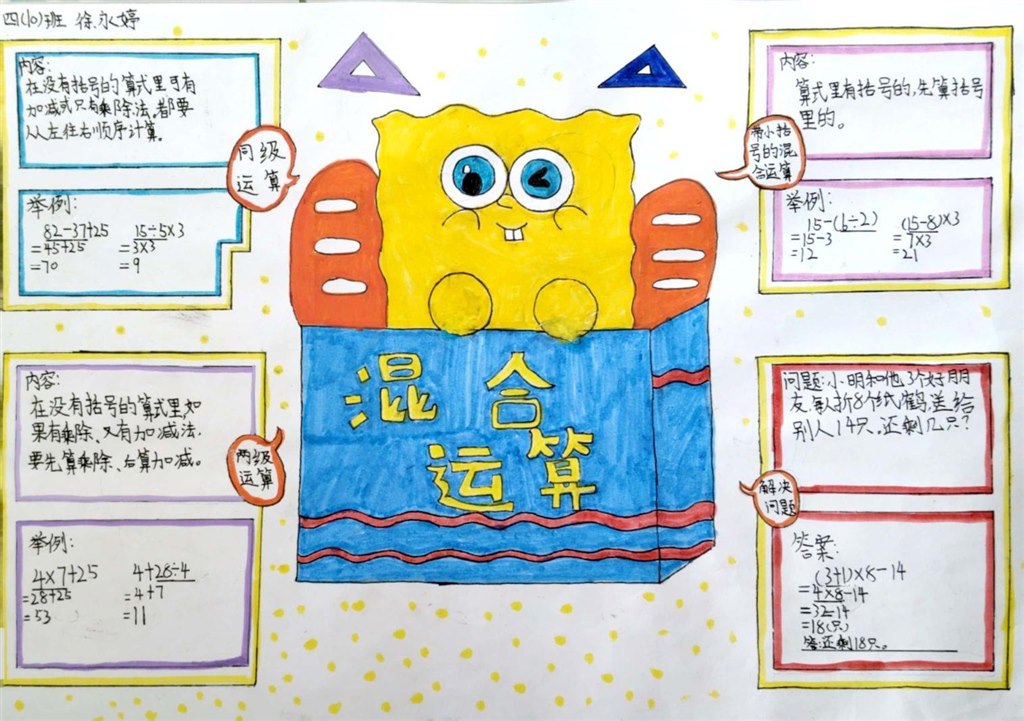 四(10)班 徐永婷
内容:
在没有括号的算式里可有
加减或只有乘除法。都要
从左往右顺序计算。
同级
运算
举例:
82-37+25 15÷5×3
=45+25 =3×3
=70 =9
内容:
算式里有括号的,先算括号
里的。
带小括
号的混
合运算
举例:
15-(6÷2) (15-8)×3
=15-3 =7×3
=12 =21
混合
运算
内容:
在没有括号的算式里,如
果有乘除、又有加减法.
要先算乘除、后算加减。
两级
运算
举例:
4×7+25 4+28÷4
=28+25 =4+7
=53 =11
问题:小明和他3个好朋
友,每人折8个纸鹤,送给
别人14只,还剩几只?
解决
问题
答案:
(3+1)×8-14
=4×8-14
=32-14
=18(只)
答:还剩18只。